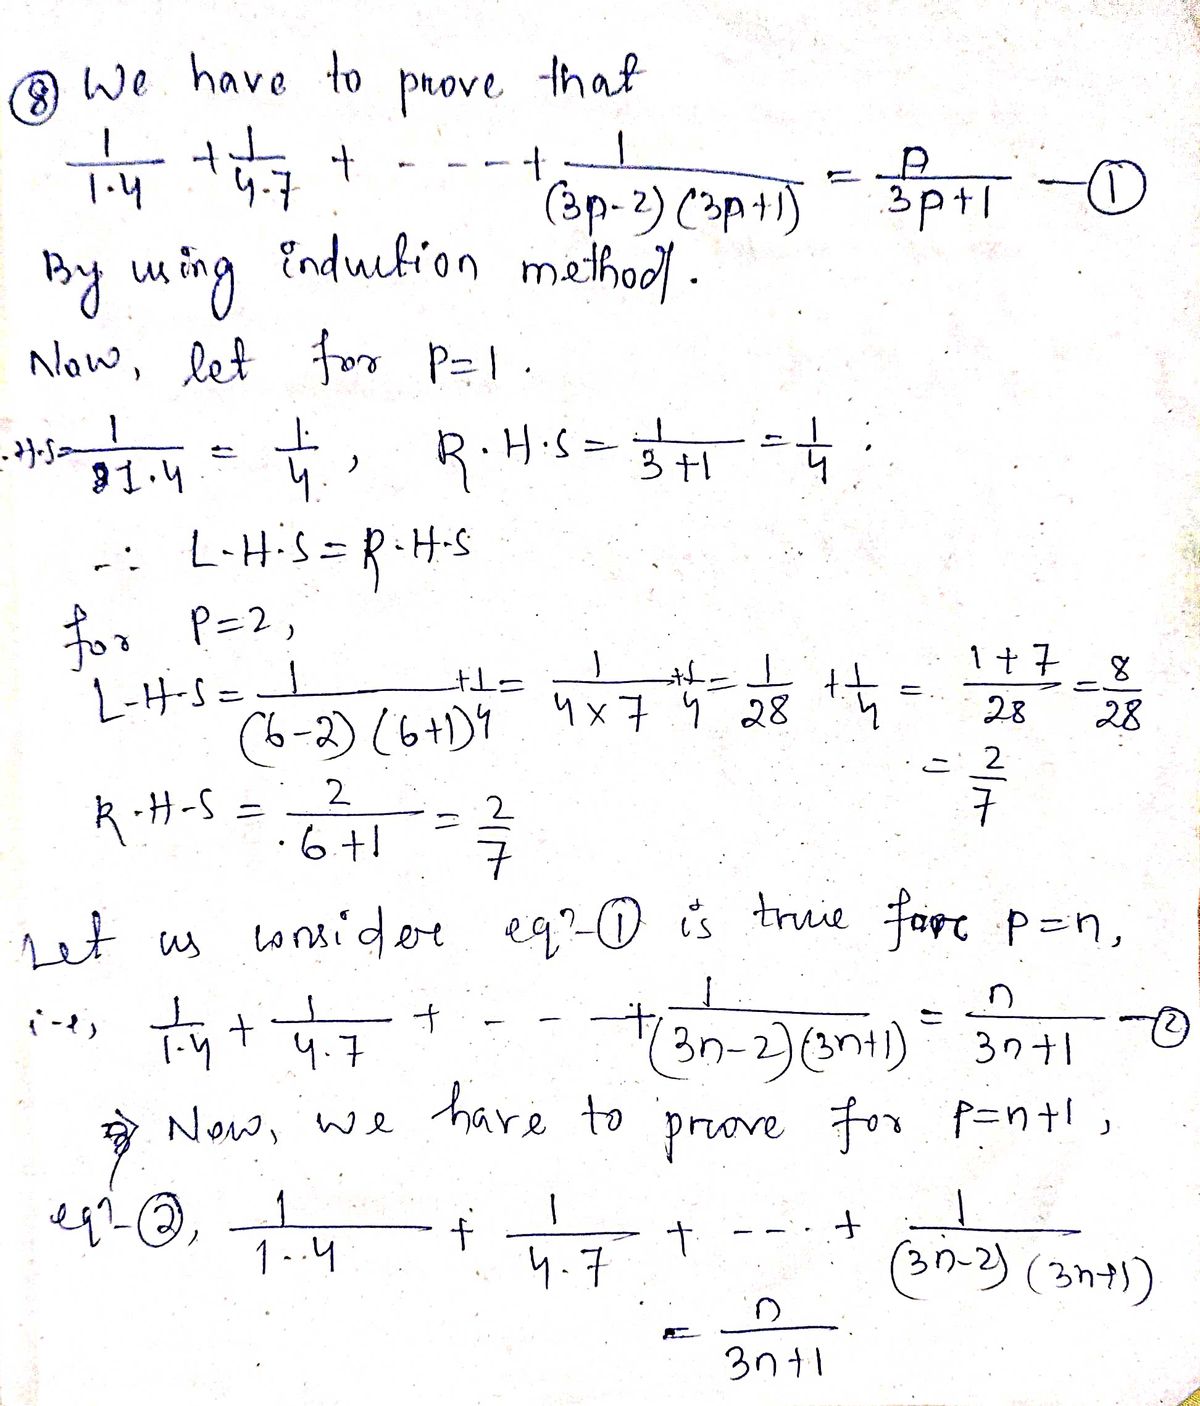 ⑧ We have to prove that
1/1.4 + 1/4.7 + ---- + 1/(3p-2)(3p+1) = p/3p+1 —①
By using induction method.
Now, let for p=1.
.H.S= 1/1.4 = 1/4, R.H.S = 1/3+1 = 1/4 ;
∴ L.H.S = R.H.S
for P=2,
L-H-S = 1/(6-2)(6+1) + 1/4 = 1/4×7 + 1/4 = 1/28 + 1/4 = 1+7/28 = 8/28
= 2/7
R-H-S = 2/6+1 = 2/7
Let us consider eqn-① is true for p=n,
i-e, 1/1.4 + 1/4.7 + - - - + 1/(3n-2)(3n+1) = n/3n+1 —②
Now, we have to prove for p=n+1,
eqn-②, 1/1..4 + 1/4.7 + ---- + 1/(3n-2)(3n+1)
= n/3n+1